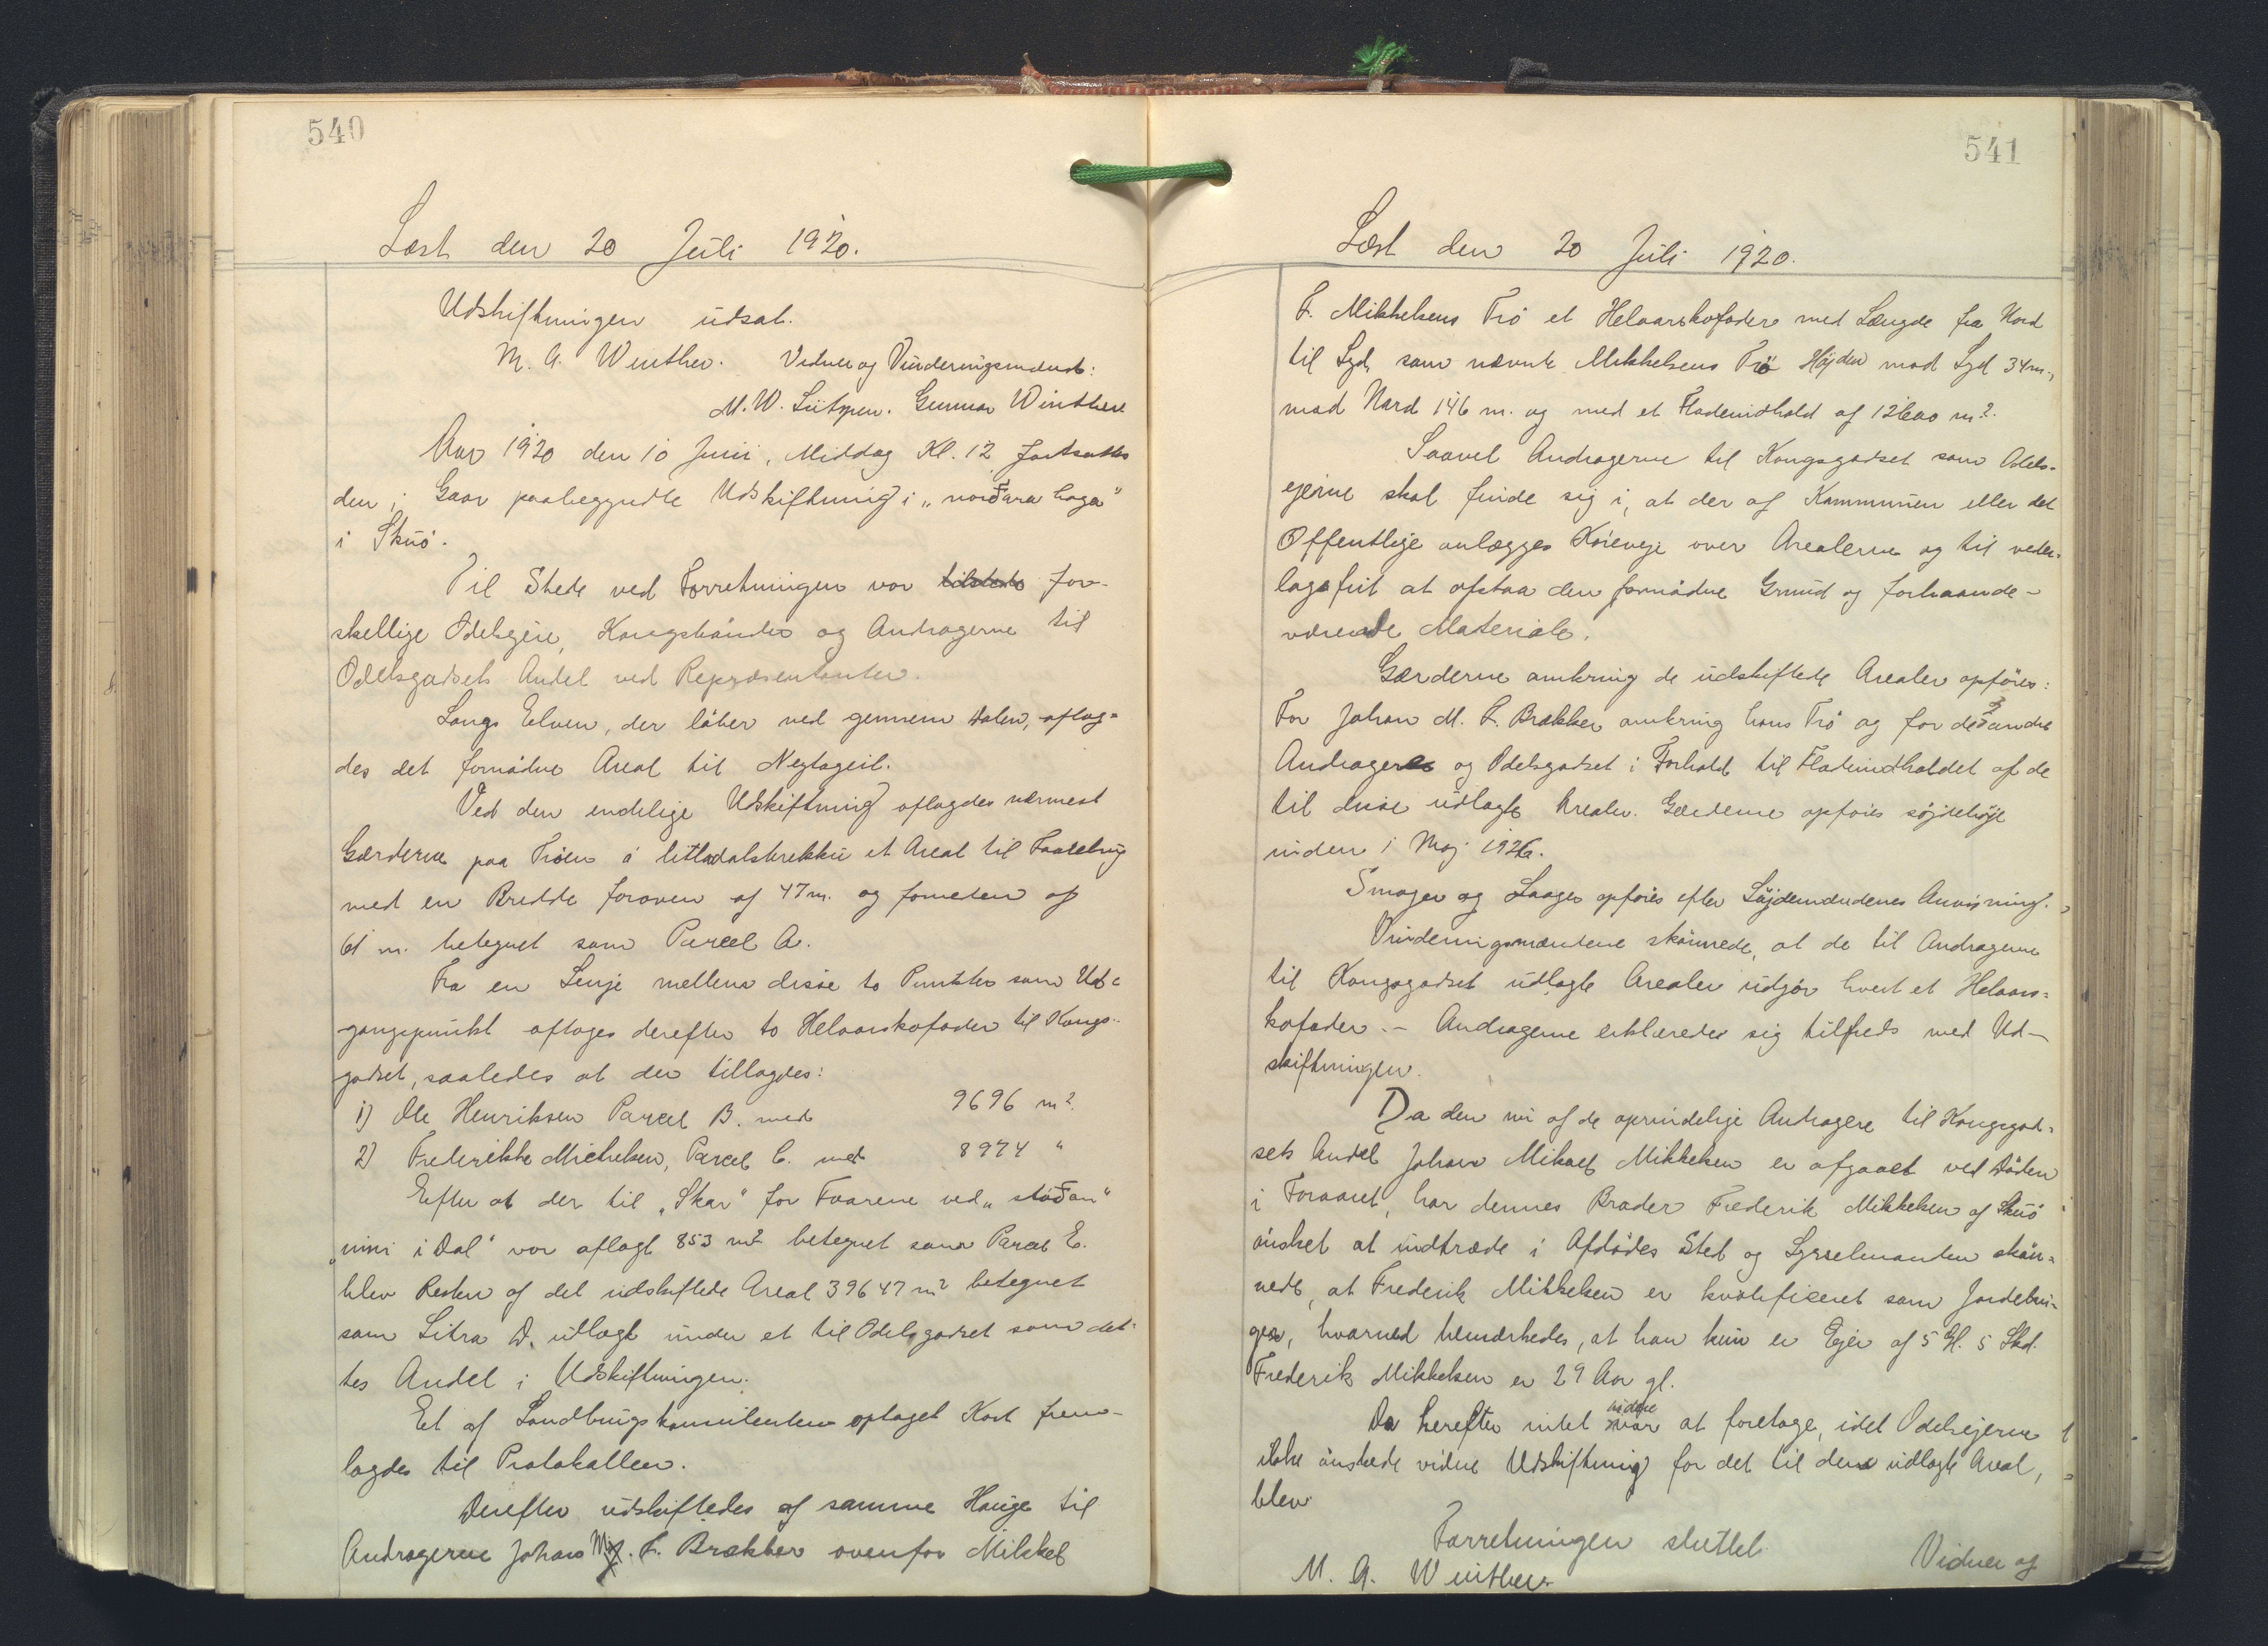 540
Læst den 20 Juli 1920.
Udskiftningen udsat.
M. A. Winther. Vidner og Vurderingsmænd:
M. W. Lützen. Gunnar Winther
Aar 1920 den 10 Juni, Middag Kl. 12 fortsattes
den i Gaar paabegyndte Udskiftning i „norðara haga“
i Skuö.
Til Stede ved Forretningen var for-
skellige Odelsejere, Kongsbönder og Andragerne til
Odelsgodsets Andel ved Repræsentanter.
Langs Elven, der löber ned gennem Dalen, aflag-
des det fornödne Areal til Neytageil.
Ved den endelige Udskiftning aflagdes nærmest
Gærderne paa Tröen á litladalsbrekku et Areal til Faatebrug
med en Bredde foroven af 47 m. og forneden af
61 m. betegnet som Parcel A.
Fra en Linje mellem disse to Punkter som Ud-
gangspunkt aftoges derefter to Helaarskofoder til Kongs-
godset, saaledes at der tillagdes:
1) Ole Henriksen Parcel B. med 9696 m².
2) Frederikke Michelsen, Parcel C. med 8974 "
Efter at der til „Skar“ for Faarene ved „støðan“
„inni i Dal“ var aflagt 853 m² betegnet som Parcel E.
blev Resten af det udskiftede Areal 39647 m² betegnet
som Litra D. udlagt under et til Odelsgodset som det-
tes Andel i Udskiftningen.
Et af Landbrugskonsulenten optaget Kort frem-
lagdes til Protokollen.
Derefter udskiftedes af samme Hauge til
Andragerne Johan M. F. Brekker ovenfor Mikkel
541
Læst den 20 Juli 1920.
F. Mikkelsens Trö et Helaarskofoder med Længde fra Nord
til Syd som nævnte Mikkelsens Trö Højden mod Syd 34 m.,
mod Nord 146 m. og med et Fladeindhold af 12600 m².
Saavel Andragerne til Kongsgodset som Odels-
ejerne skal finde sig i, at der af Kommunen eller det
Offentlige anlægges Köreveje over Arealerne og til veder-
lagsfrit at afstaa den fornödne Grund og forhaande-
værende Materiale.
Gærderne omkring de udskiftede Arealer opföres:
For Johan M. F. Brekker omkring hans Trö og for de 2 andre
Andragere og Odelsgodset i Forhold til Fladeindholdet af de
til disse udlagte Arealer. Gærderne opföres söjdehöje
inden 1 Maj 1926.
Smoger og Laager opföres efter Söjdemændenes Anvisning.
Vurderingsmændene skönnede, at de til Andragerne
til Kongsgodset udlagte Arealer udgör hvert et Helaars-
kofoder. – Andragerne erklærede sig tilfreds med Ud-
skiftningen.
Da den ni af de oprindelige Andragere til Kongsgod-
sets Andel Johan Mikael Mikkelsen er afgaaet ved Döden
i Foraaret, har dennes Broder Frederik Mikkelsen af Skuö
önsket at indtræde i Afdödes Sted og Sysselmanden skön-
nede, at Frederik Mikkelsen er kvalificeret som Jordebru-
ger, hvorved bemærkedes, at han kun er Ejer af 5 Gl. 5 Skd.
Frederik Mikkelsen er 29 Aar gl.
Da herefter intet videre var at foretage, idet Odelsejerne
ikke önskede videre Udskiftning for det til dem udlagte Areal,
blev
Forretningen sluttet.
M. A. Winther Vidner og